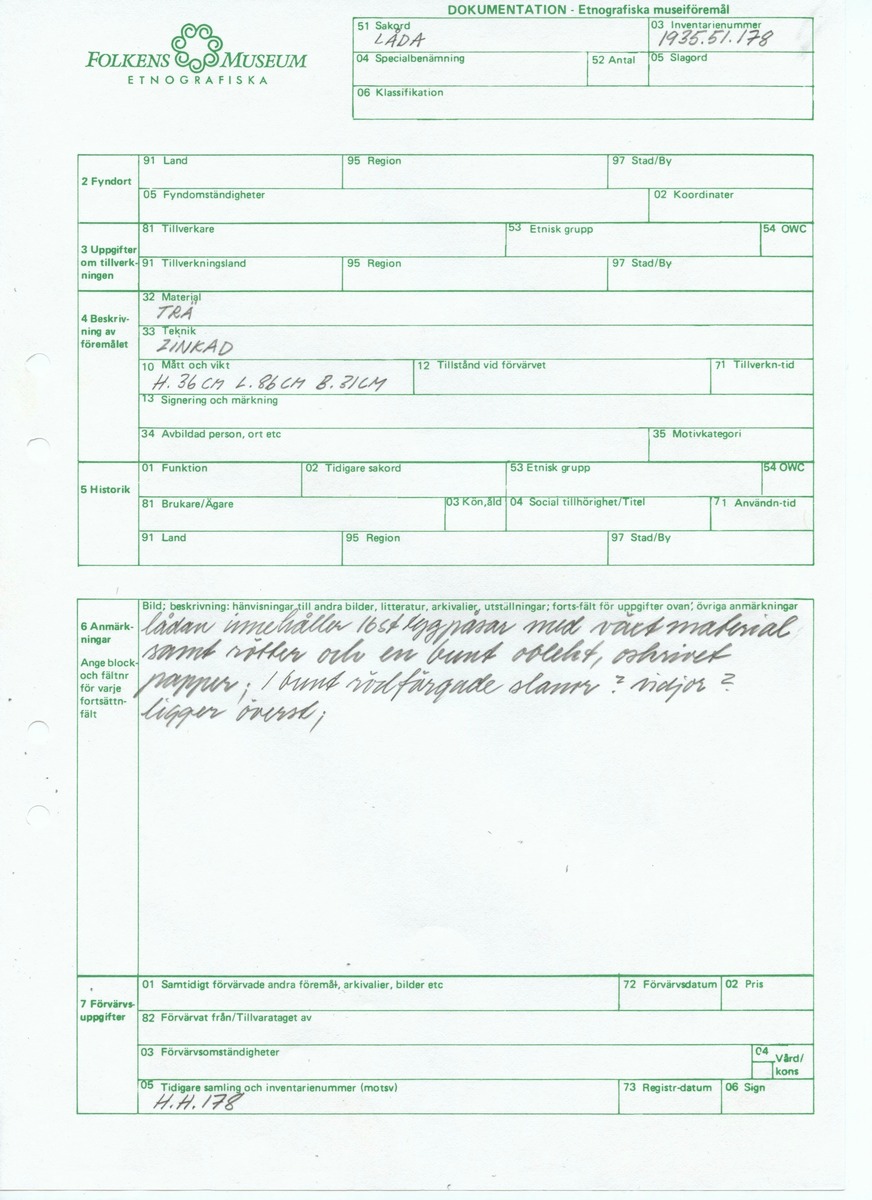 DOKUMENTATION - Etnografiska museiföremål
FOLKENS MUSEUM
ETNOGRAFISKA
51 Sakord
LÅDA
03 Inventarienummer
1935.51.178
04 Specialbenämning
52 Antal
05 Slagord
06 Klassifikation
2 Fyndort
91 Land
95 Region
97 Stad/By
05 Fyndomständigheter
02 Koordinater
3 Uppgifter
om tillverk-
ningen
81 Tillverkare
53 Etnisk grupp
54 OWC
91 Tillverkningsland
95 Region
97 Stad/By
4 Beskriv-
ning av
föremålet
32 Material
TRÄ
33 Teknik
ZINKAD
10 Mått och vikt
H. 36 CM L. 86 CM B. 31 CM
12 Tillstånd vid förvärvet
71 Tillverkn-tid
13 Signering och märkning
34 Avbildad person, ort etc
35 Motivkategori
5 Historik
01 Funktion
02 Tidigare sakord
53 Etnisk grupp
54 OWC
81 Brukare/Ägare
03 Kön,åld
04 Social tillhörighet/Titel
71 Användn-tid
91 Land
95 Region
97 Stad/By
6 Anmärk-
ningar
Ange block-
och fältnr
för varje
fortsättn-
fält
Bild; beskrivning: hänvisningar till andra bilder, litteratur, arkivalier, utställningar; forts-fält för uppgifter ovan; övriga anmärkningar
lådan innehåller 16 st tygpåsar med växtmaterial
samt rötter och en bunt oblekt, oskrivet
papper; 1 bunt rödfärgade slanor? vidjor?
ligger överst;
7 Förvärvs-
uppgifter
01 Samtidigt förvärvade andra föremål, arkivalier, bilder etc
72 Förvärvsdatum
02 Pris
82 Förvärvat från/Tillvarataget av
03 Förvärvsomständigheter
04 Vård/
kons
05 Tidigare samling och inventarienummer (motsv)
H.H. 178
73 Registr-datum
06 Sign